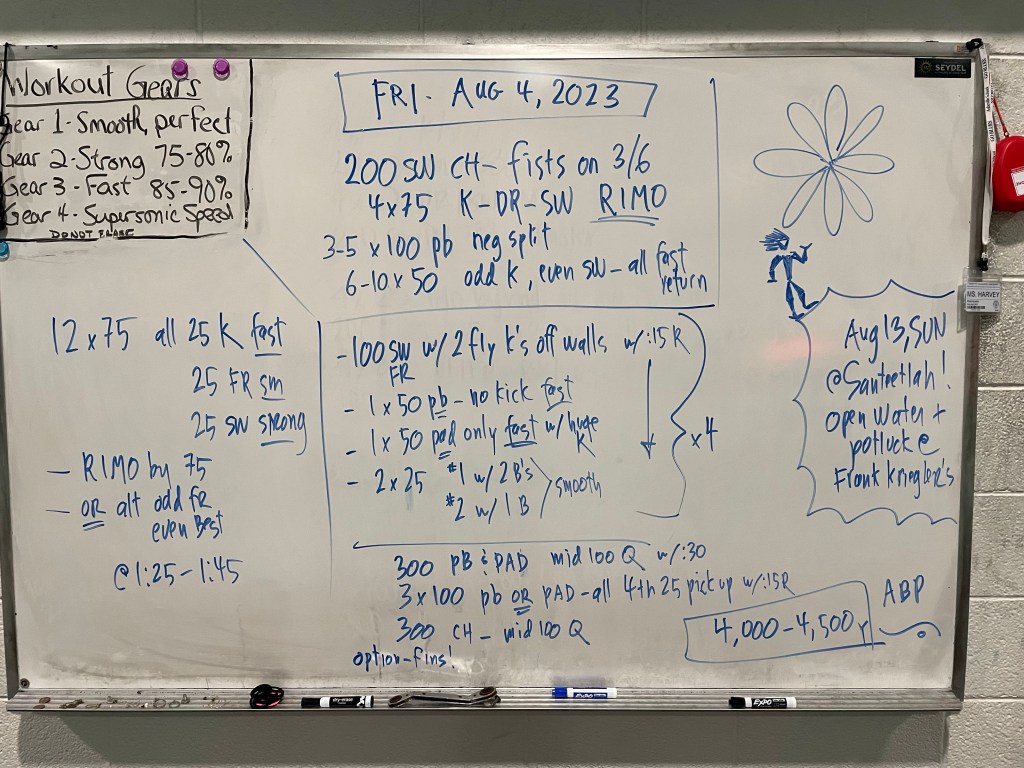 Workout Gears
Gear 1 - Smooth, perfect
Gear 2 - Strong 75-80%
Gear 3 - Fast 85-90%
Gear 4 - Supersonic Speed
DO NOT ERASE
FRI. AUG 4, 2023
200 SW CH - fists on 3/6
4x75 K-DR-SW RIMO
3-5 x 100 pb neg split
6-10 x 50 odd K, even SW - all fast return
12 x 75 all 25 K fast
25 FR sm
25 SW strong
- RIMO by 75
- OR alt odd FR
even Best
@ 1:25 - 1:45
- 100 SW w/ 2 fly k's off walls w/ :15 R
FR
- 1 x 50 pb - no kick fast
- 1 x 50 pad only fast w/ huge K
- 2 x 25 #1 w/ 2 B's
#2 w/ 1 B
smooth
x 4
300 PB & PAD mid 100 Q w/ :30
3 x 100 pb OR PAD - all 4th 25 pick up w/ :15 R
300 CH - mid 100 Q
option - fins!
4,000 - 4,500 y
ABP
Aug 13, SUN
@ Santeetlah!
open water +
potluck @
Frank Kringler's
SEYDEL
MS. HARVEY
EXPO
EXPO